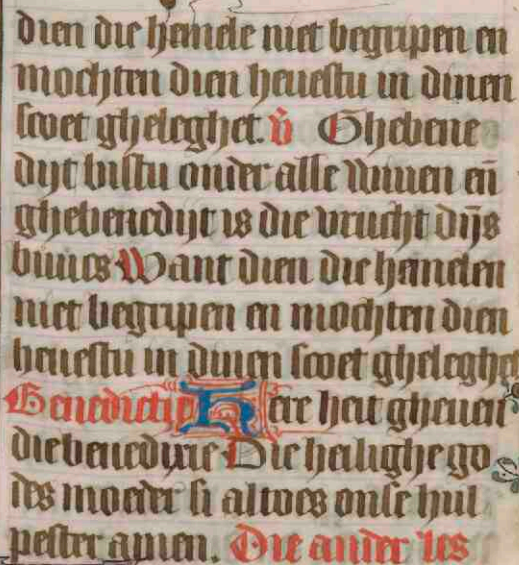 dien die hemele niet begripen en
mochten dien heuestu in dinen
scoet gheleghet. v̄ Ghebene
dijt bistu onder alle wiuen eñ
ghebenedijt is die vrucht dijs
buucs Want dien die hemelen
niet begripen en mochten dien
heuestu in dinen scoet gheleghet
Benedictio Here heit gheuent
die benedixie Die heilighe go
des moeder si altoes onse hul
pester amen. Die ander les